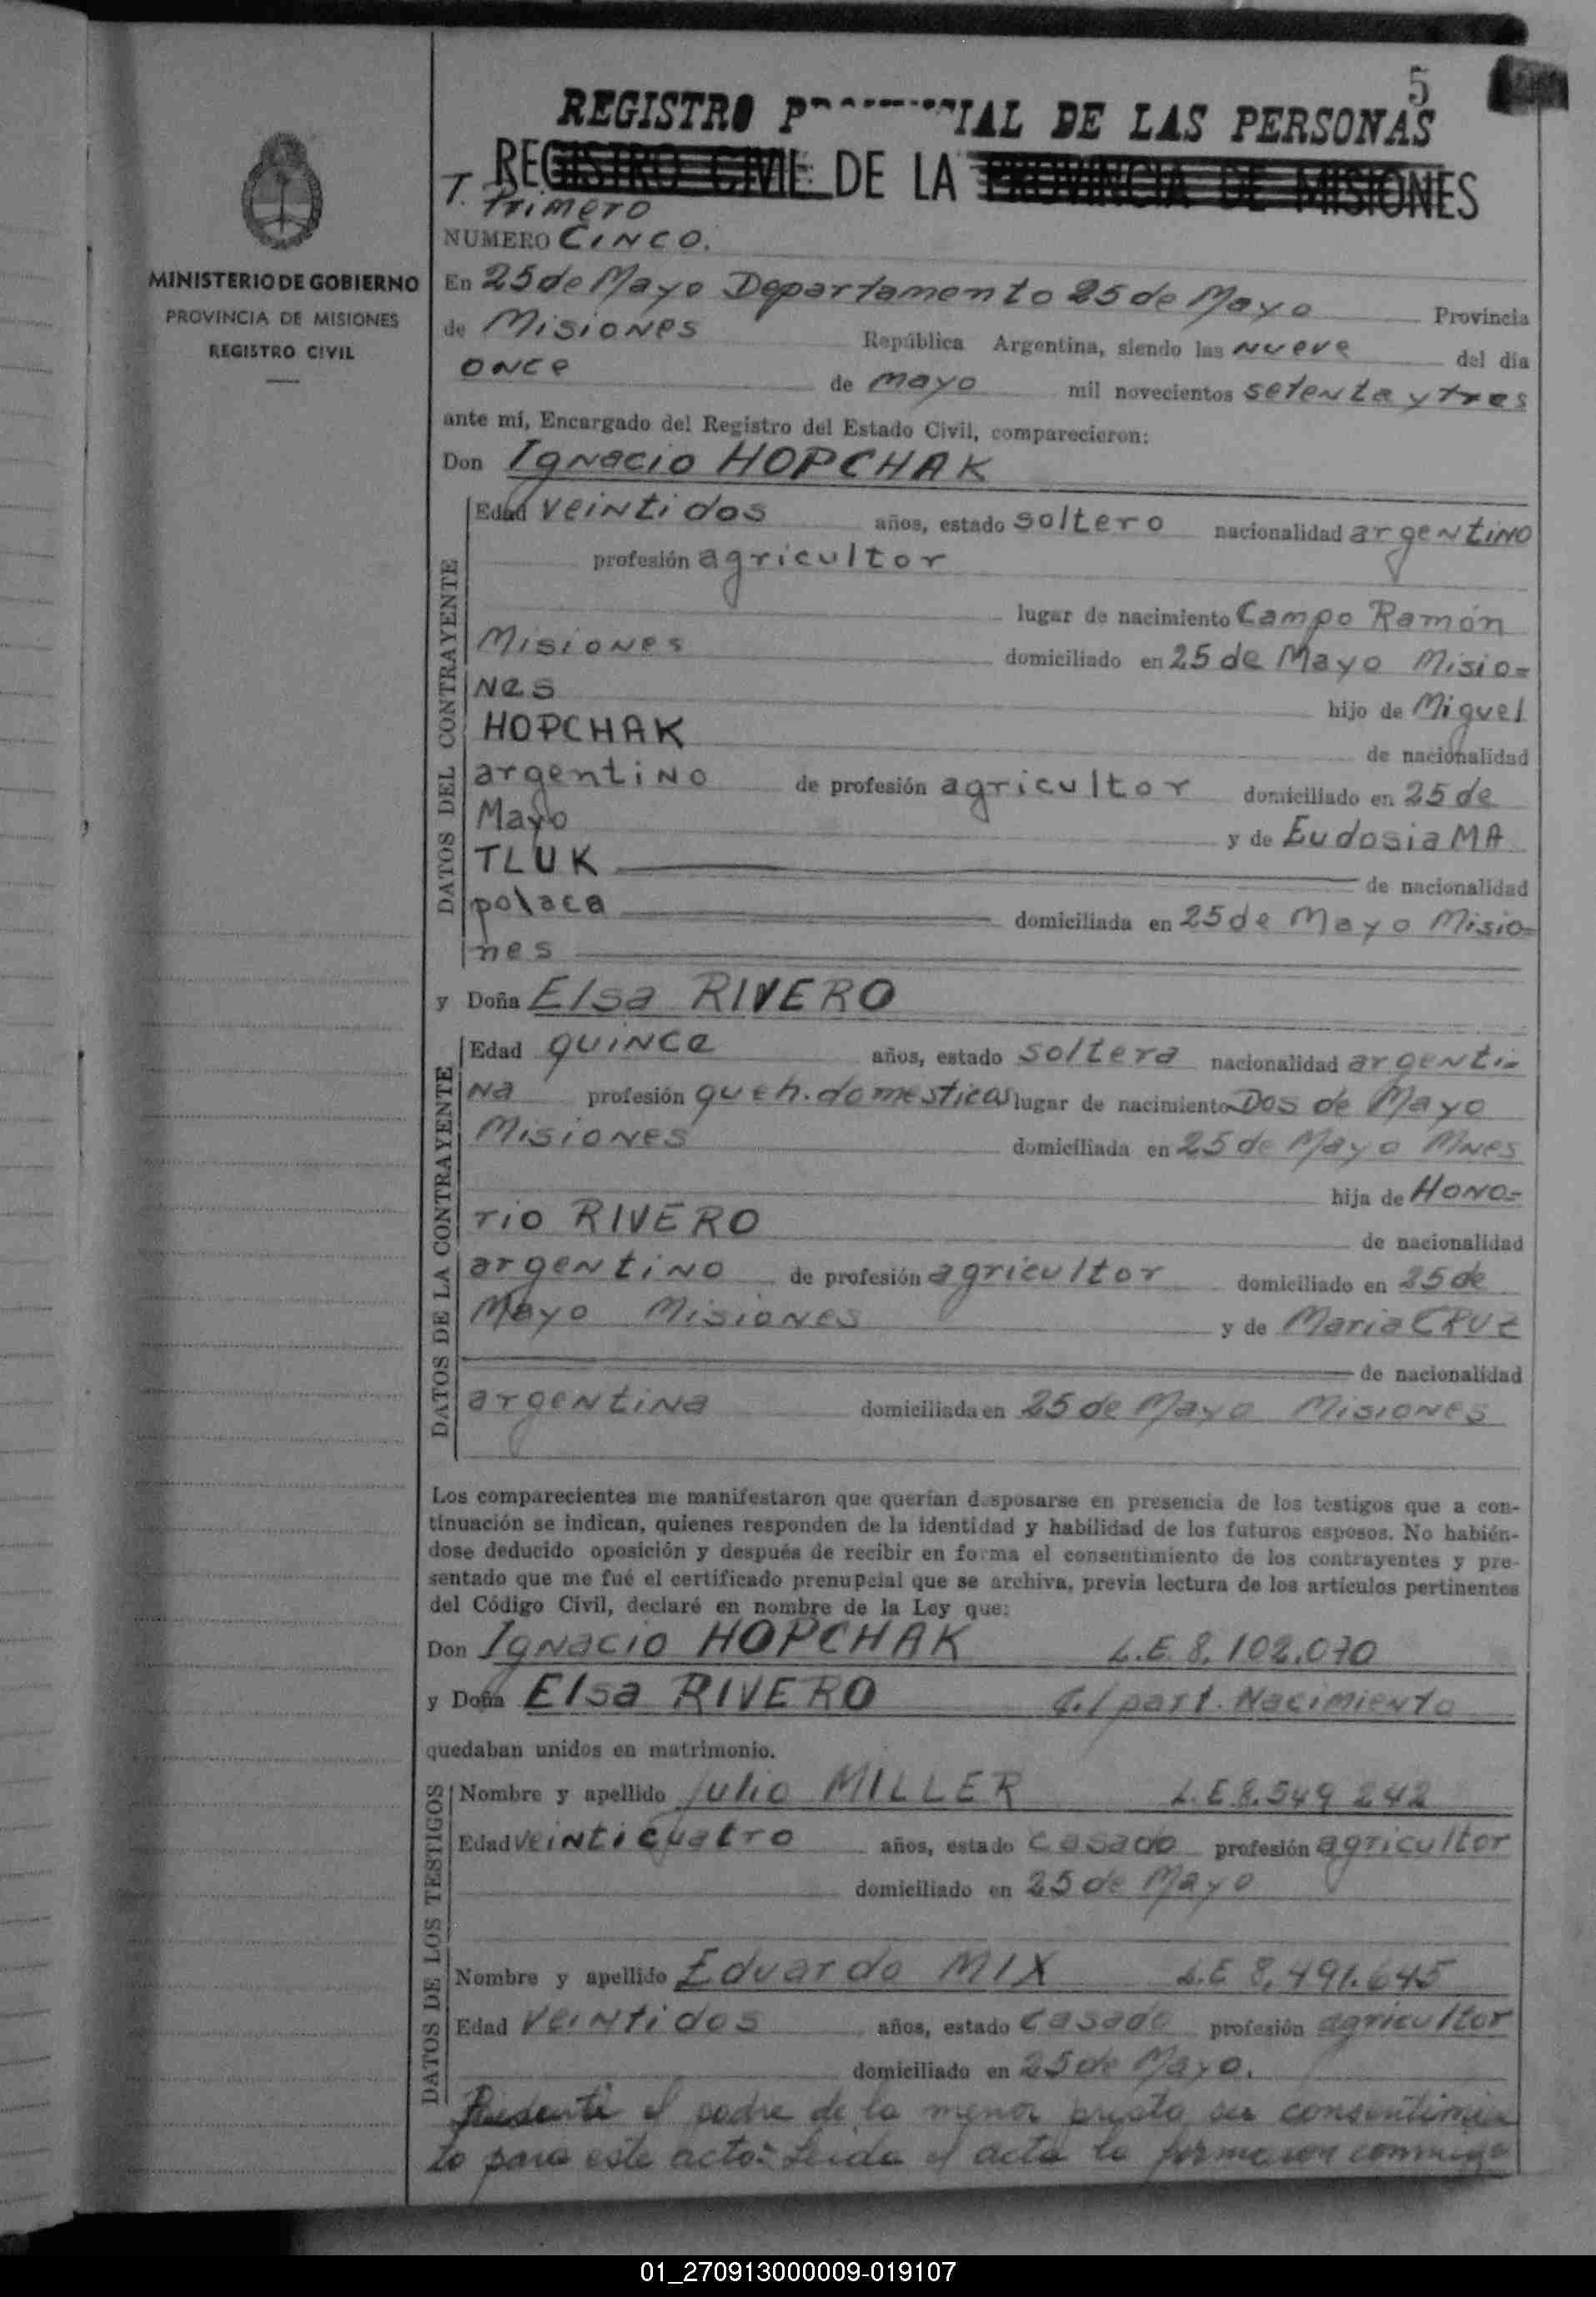 5
REGISTRO P IAL DE LAS PERSONAS
REGISTRO CIVIL DE LA PROVINCIA DE MISIONES
T. Primero
NUMERO CINCO.
MINISTERIO DE GOBIERNO
PROVINCIA DE MISIONES
REGISTRO CIVIL
En 25 de Mayo Departamento 25 de Mayo Provincia
de Misiones República Argentina, siendo las nueve del día
once de mayo mil novecientos setenta y tres
ante mí, Encargado del Registro del Estado Civil, comparecieron:
Don Ignacio HOPCHAK
DATOS DEL CONTRAYENTE
Edad veintidos años, estado soltero nacionalidad argentino
profesión agricultor
lugar de nacimiento Campo Ramón
Misiones domiciliado en 25 de Mayo Misio=
nes hijo de Miguel
HOPCHAK de nacionalidad
argentino de profesión agricultor domiciliado en 25 de
Mayo y de Eudosia MA
TLUK de nacionalidad
polaca domiciliada en 25 de Mayo Misio=
nes
y Doña Elsa RIVERO
DATOS DE LA CONTRAYENTE
Edad quince años, estado soltera nacionalidad argenti=
na profesión queh. domesticas lugar de nacimiento Dos de Mayo
Misiones domiciliada en 25 de Mayo Mnes
hija de Hono=
rio RIVERO de nacionalidad
argentino de profesión agricultor domiciliado en 25 de
Mayo Misiones y de Maria CRUZ
de nacionalidad
argentina domiciliada en 25 de Mayo Misiones
Los comparecientes me manifestaron que querían desposarse en presencia de los testigos que a con-
tinuación se indican, quienes responden de la identidad y habilidad de los futuros esposos. No habién-
dose deducido oposición y después de recibir en forma el consentimiento de los contrayentes y pre-
sentado que me fué el certificado prenupcial que se archiva, previa lectura de los artículos pertinentes
del Código Civil, declaré en nombre de la Ley que:
Don Ignacio HOPCHAK L.E. 8.102.070
y Doña Elsa RIVERO C./part. Nacimiento
quedaban unidos en matrimonio.
DATOS DE LOS TESTIGOS
Nombre y apellido Julio MILLER L.E. 8.549 242
Edad veinticuatro años, estado casado profesión agricultor
domiciliado en 25 de Mayo
Nombre y apellido Eduardo MIX L.E 8.491.645
Edad veintidos años, estado casado profesión agricultor
domiciliado en 25 de Mayo.
Presente el padre de la menor presta su consentimien
to para este acto: Leida el acta la firmaron conmigo
01_270913000009-019107